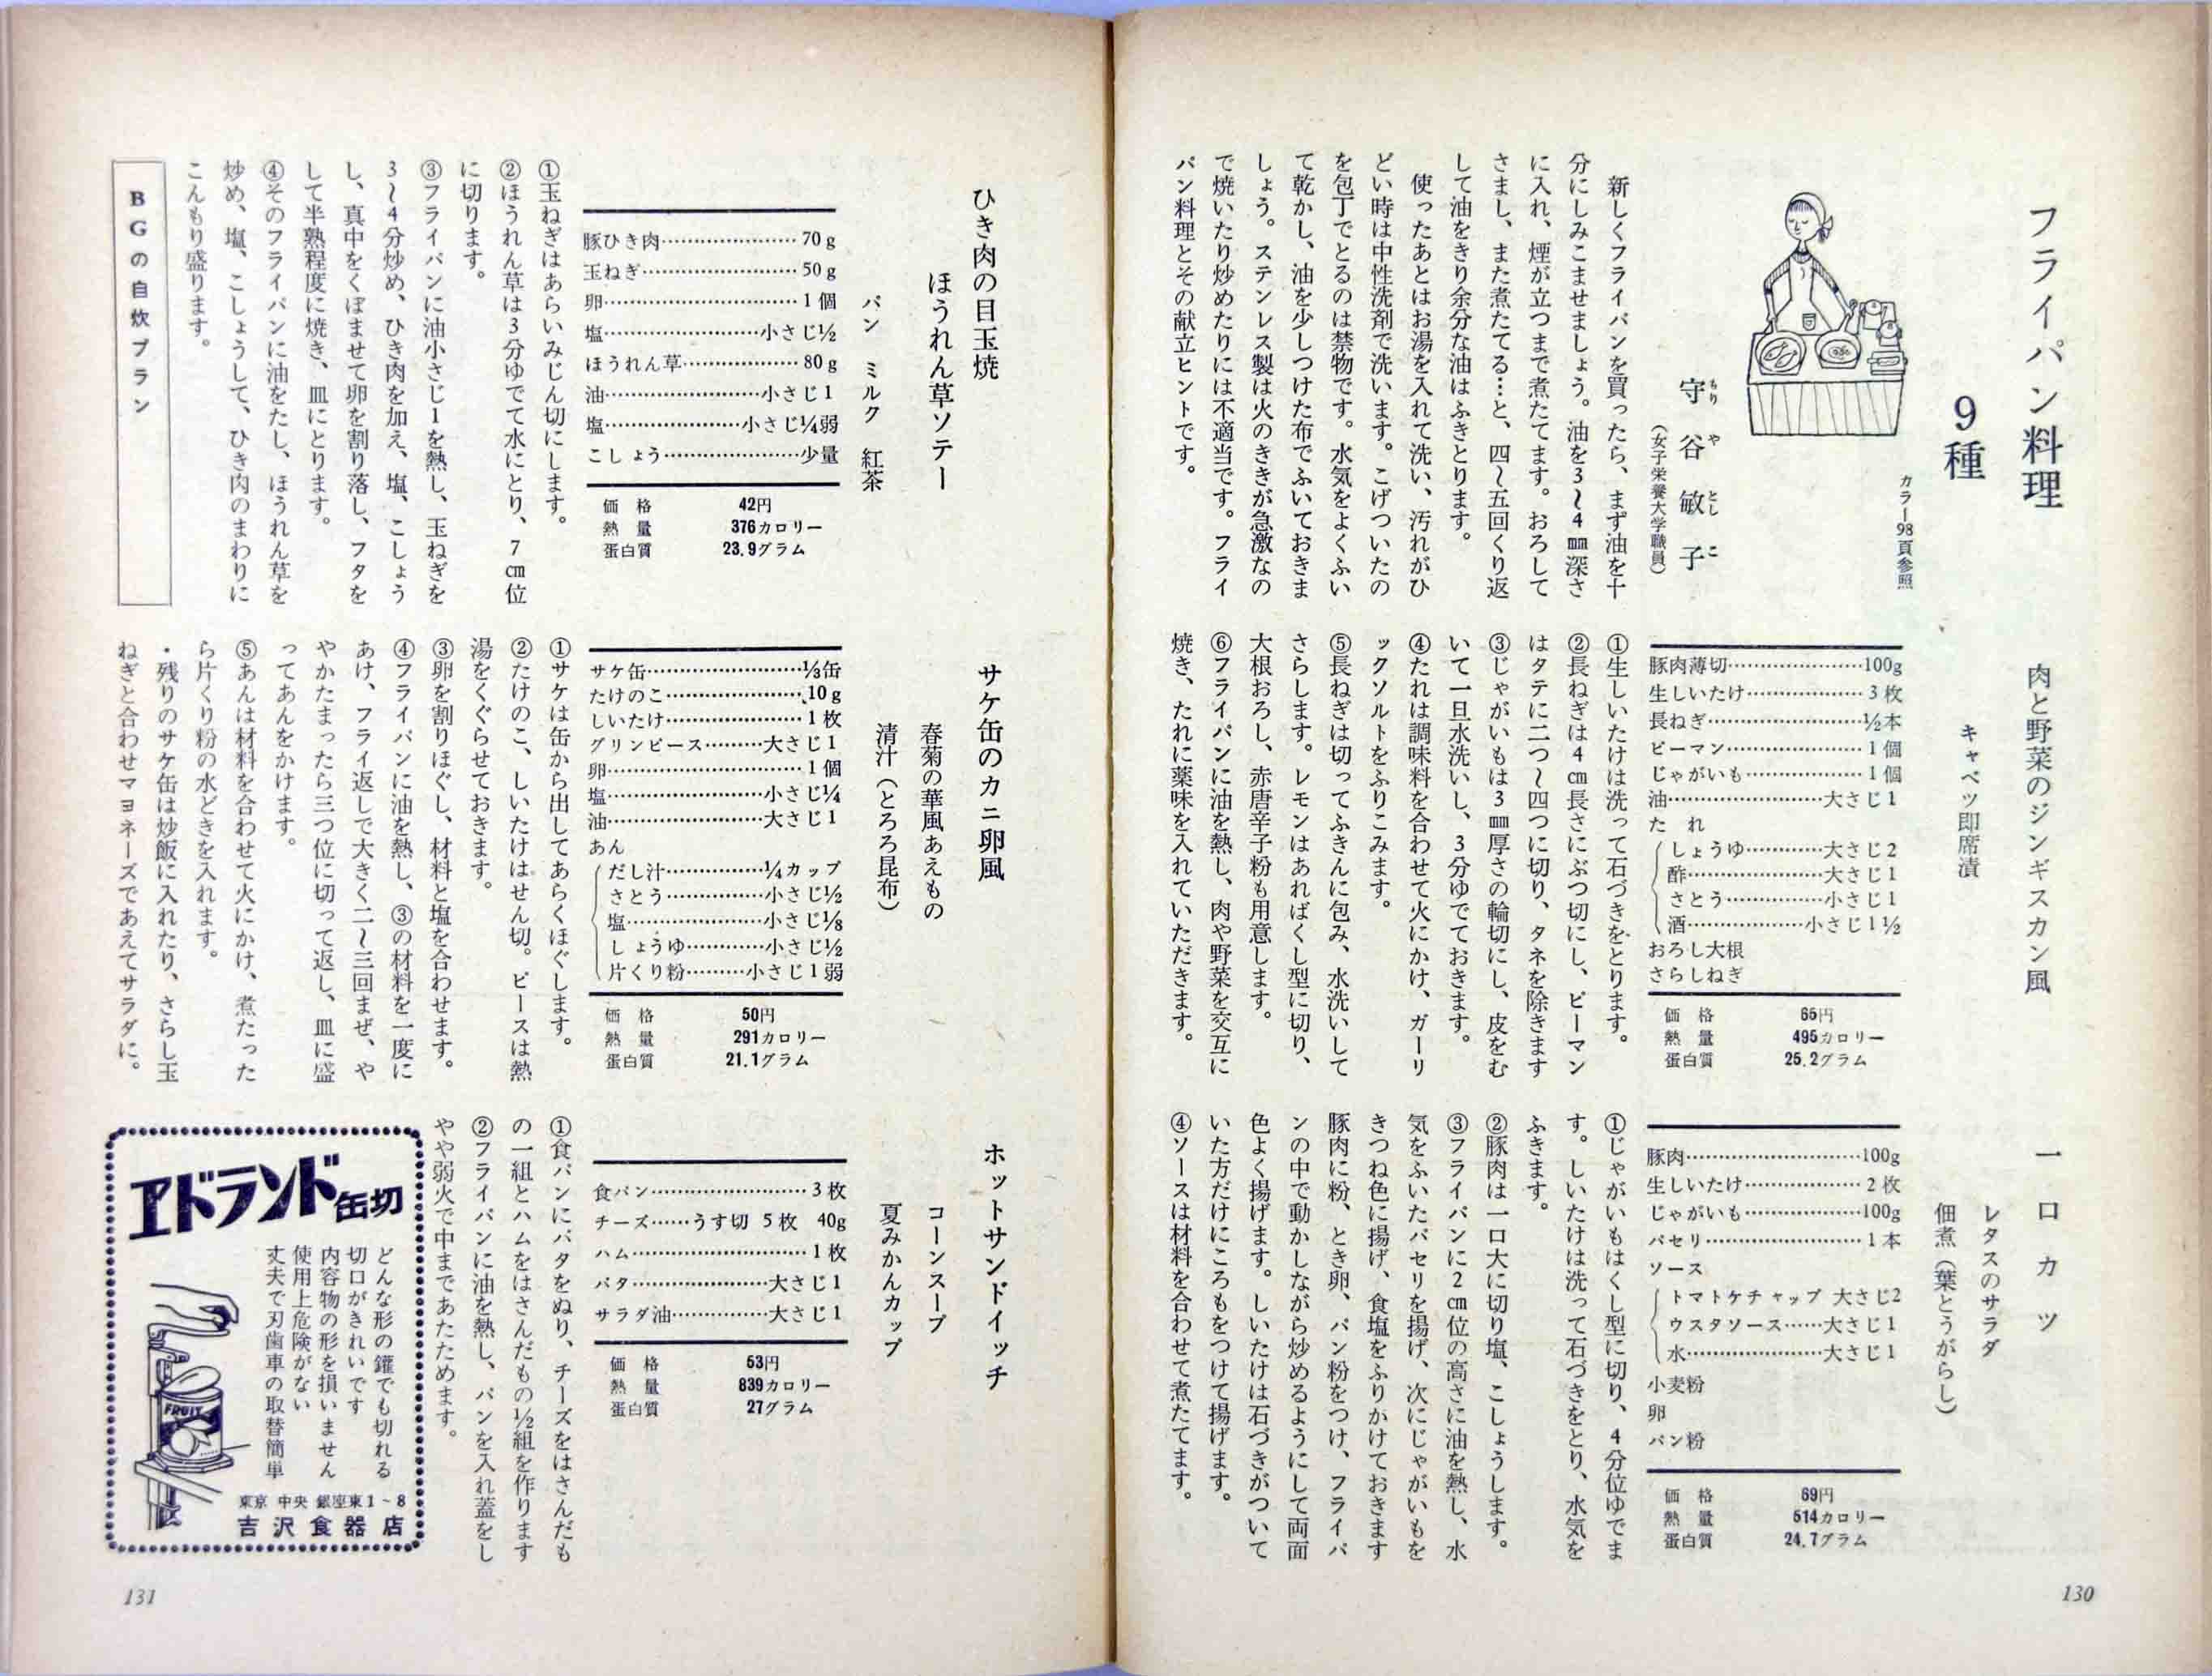 フライパン料理
9種
カラー98頁参照
守谷敏子
もりやとしこ
(女子栄養大学職員)
新しくフライパンを買ったら、まず油を十
分にしみこませましょう。油を3〜4㎜深さ
に入れ、煙が立つまで煮たてます。おろして
さまし、また煮たてる…と、四〜五回くり返
して油をきり余分な油はふきとります。
使ったあとはお湯を入れて洗い、汚れがひ
どい時は中性洗剤で洗います。こげついたの
を包丁でとるのは禁物です。水気をよくふい
て乾かし、油を少しつけた布でふいておきま
しょう。ステンレス製は火のききが急激なの
で焼いたり炒めたりには不適当です。フライ
パン料理とその献立ヒントです。
肉と野菜のジンギスカン風
キャベツ即席漬
豚肉薄切……100g
生しいたけ……3枚
長ねぎ……½本
ピーマン……1個
じゃがいも……1個
油……大さじ1
たれ
しょうゆ……大さじ2
酢……大さじ1
さとう……小さじ1
酒……小さじ1½
おろし大根
さらしねぎ
価格 65円
熱量 495カロリー
蛋白質 25.2グラム
①生しいたけは洗って石づきをとります。
②長ねぎは4㎝長さにぶつ切にし、ピーマン
はタテに二つ〜四つに切り、タネを除きます
③じゃがいもは3㎜厚さの輪切にし、皮をむ
いて一旦水洗いし、3分ゆでておきます。
④たれは調味料を合わせて火にかけ、ガーリ
ックソルトをふりこみます。
⑤長ねぎは切ってふきんに包み、水洗いして
さらします。レモンはあればくし型に切り、
大根おろし、赤唐辛子粉も用意します。
⑥フライパンに油を熱し、肉や野菜を交互に
焼き、たれに薬味を入れていただきます。
一口カツ
レタスのサラダ
佃煮(葉とうがらし)
豚肉……100g
生しいたけ……2枚
じゃがいも……100g
パセリ……1本
ソース
トマトケチャップ 大さじ2
ウスタソース……大さじ1
水……大さじ1
小麦粉
卵
パン粉
価格 69円
熱量 514カロリー
蛋白質 24.7グラム
①じゃがいもはくし型に切り、4分位ゆでま
す。しいたけは洗って石づきをとり、水気を
ふきます。
②豚肉は一口大に切り塩、こしょうします。
③フライパンに2㎝位の高さに油を熱し、水
気をふいたパセリを揚げ、次にじゃがいもを
きつね色に揚げ、食塩をふりかけておきます
豚肉に粉、とき卵、パン粉をつけ、フライパ
ンの中で動かしながら炒めるようにして両面
色よく揚げます。しいたけは石づきがついて
いた方だけにころもをつけて揚げます。
④ソースは材料を合わせて煮たてます。
130
ひき肉の目玉焼
ほうれん草ソテー
パン ミルク 紅茶
豚ひき肉……70g
玉ねぎ……50g
卵……1個
塩……小さじ½
ほうれん草……80g
油……小さじ1
塩……小さじ¼弱
こしょう……少量
価格 42円
熱量 376カロリー
蛋白質 23.9グラム
①玉ねぎはあらいみじん切にします。
②ほうれん草は3分ゆでて水にとり、7㎝位
に切ります。
③フライパンに油小さじ1を熱し、玉ねぎを
3〜4分炒め、ひき肉を加え、塩、こしょう
し、真中をくぼませて卵を割り落し、フタを
して半熟程度に焼き、皿にとります。
④そのフライパンに油をたし、ほうれん草を
炒め、塩、こしょうして、ひき肉のまわりに
こんもり盛ります。
BGの自炊プラン
サケ缶のカニ卵風
春菊の華風あえもの
清汁(とろろ昆布)
サケ缶……⅓缶
たけのこ……10g
しいたけ……1枚
グリンピース……大さじ1
卵……1個
塩……小さじ¼
油……大さじ1
あん
だし汁……¼カップ
さとう……小さじ½
塩……小さじ⅛
しょうゆ……小さじ½
片くり粉……小さじ1弱
価格 50円
熱量 291カロリー
蛋白質 21.1グラム
①サケは缶から出してあらくほぐします。
②たけのこ、しいたけはせん切。ピースは熱
湯をくぐらせておきます。
③卵を割りほぐし、材料と塩を合わせます。
④フライパンに油を熱し、③の材料を一度に
あけ、フライ返しで大きく二〜三回まぜ、や
やかたまったら三つ位に切って返し、皿に盛
ってあんをかけます。
⑤あんは材料を合わせて火にかけ、煮たった
ら片くり粉の水どきを入れます。
・残りのサケ缶は炒飯に入れたり、さらし玉
ねぎと合わせマヨネーズであえてサラダに。
ホットサンドイッチ
コーンスープ
夏みかんカップ
食パン……3枚
チーズ……うす切 5枚 40g
ハム……1枚
バタ……大さじ1
サラダ油……大さじ1
価格 53円
熱量 839カロリー
蛋白質 27グラム
①食パンにバタをぬり、チーズをはさんだも
の一組とハムをはさんだもの½組を作ります
②フライパンに油を熱し、パンを入れ蓋をし
やや弱火で中まであたためます。
エドランド缶切
どんな形の鑵でも切れる
切口がきれいです
内容物の形を損いません
使用上危険がない
丈夫で刃歯車の取替簡単
FRUIT
東京 中央 銀座東1〜8
吉沢食器店
131